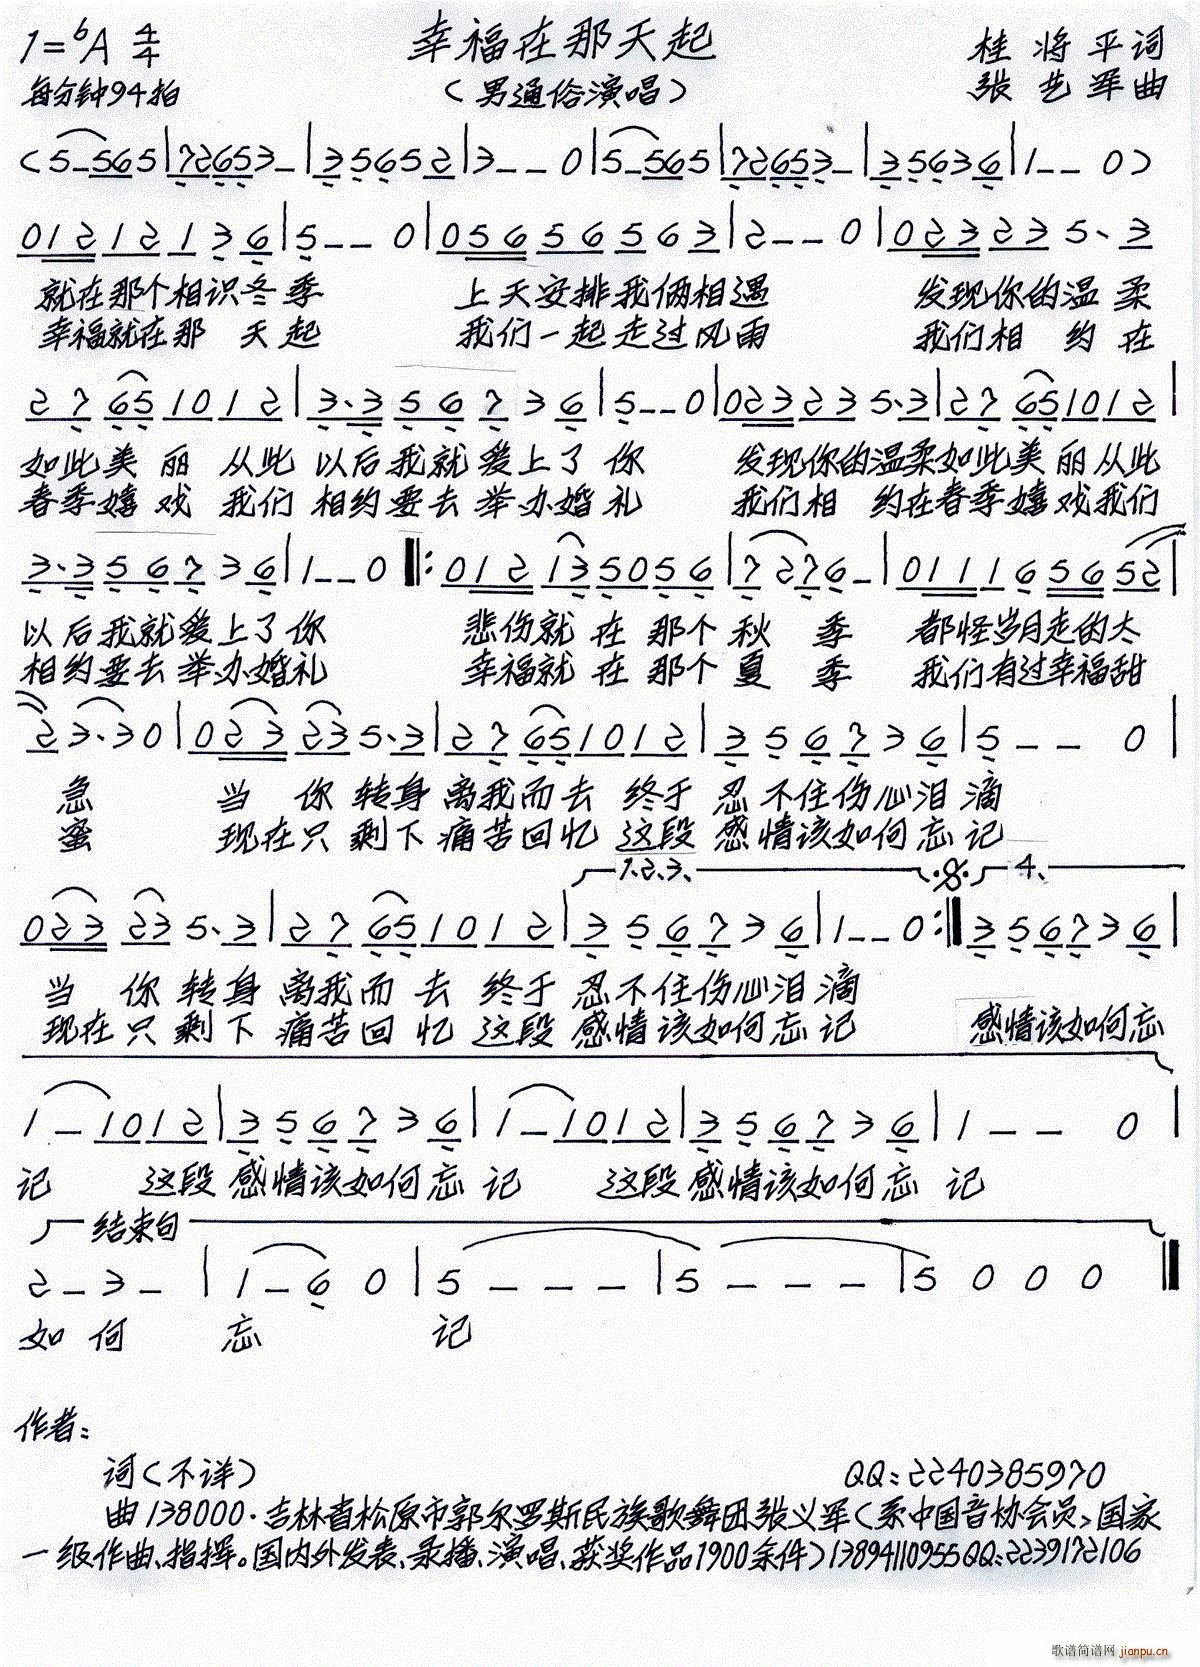 1=♭A 4/4
幸福在那天起
桂将平词
每分钟94拍
（男通俗演唱）
张艺军曲
(5-565|72653-|35652|3--0|5-565|72653-|35636|1--0)
01212136|5--0|05656563|2--0|023235、3
就在那个相识冬季 上天安排我俩相遇 发现你的温柔
幸福就在那天起 我们一起走过风雨 我们相约在
27651012|3、356736|5--0|023235、3|27651012|
如此美丽 从此以后我就爱上了你 发现你的温柔如此美丽从此
春季嬉戏 我们相约要去举办婚礼 我们相约在春季嬉戏我们
3、356736|1--0‖:01213505 6|7276-|011165652|
以后我就爱上了你 悲伤就在那个秋季 都怪岁月走的太
相约要去举办婚礼 幸福就在那个夏季 我们有过幸福甜
23、30|023235、3|27651012|356736|5--0|
急 当你转身离我而去 终于忍不住伤心泪滴
蜜 现在只剩下痛苦回忆 这段感情该如何忘记
1、2、3、 𝄋 4、
023235、3|27651012|356736|1--0:‖356736|
当你转身离我而去 终于忍不住伤心泪滴
现在只剩下痛苦回忆 这段感情该如何忘记 感情该如何忘
1-1012|356736|1-1012|356736|1--0|
记 这段感情该如何忘记 这段感情该如何忘记
结束句
2-3-|1-60|5---|5---|5000‖
如何忘记
作者：
词（不详） QQ：2240385970
曲138000·吉林省松原市郭尔罗斯民族歌舞团张义军（系中国音协会员，国家
一级作曲、指挥。国内外发表、录播、演唱、获奖作品1900余件）13894110955QQ：2239172106
歌谱简谱网 jianpu.cn